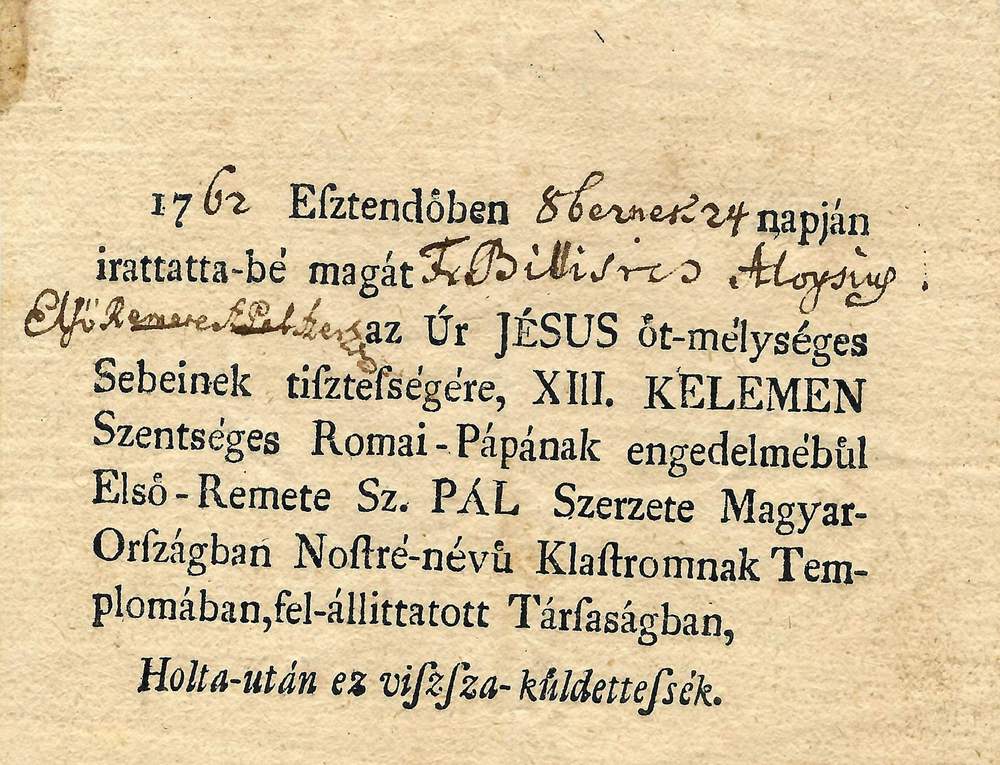 1762 Eſztendőben 8bernek 24 napján
irattatta-bé magát Fr. Aloysius
Elsö Remete az Úr JÉSUS őt-mélységes
Sebeinek tiſzteſségére, XIII. KELEMEN
Szentséges Romai-Pápának engedelmébűl
Első-Remete Sz. PÁL Szerzete Magyar-
Orſzágban Noſtré-névű Klaſtromnak Tem-
plomában, fel-állittatott Tárſaságban,
Holta-után ez viſzſza-kűldetteſsék.